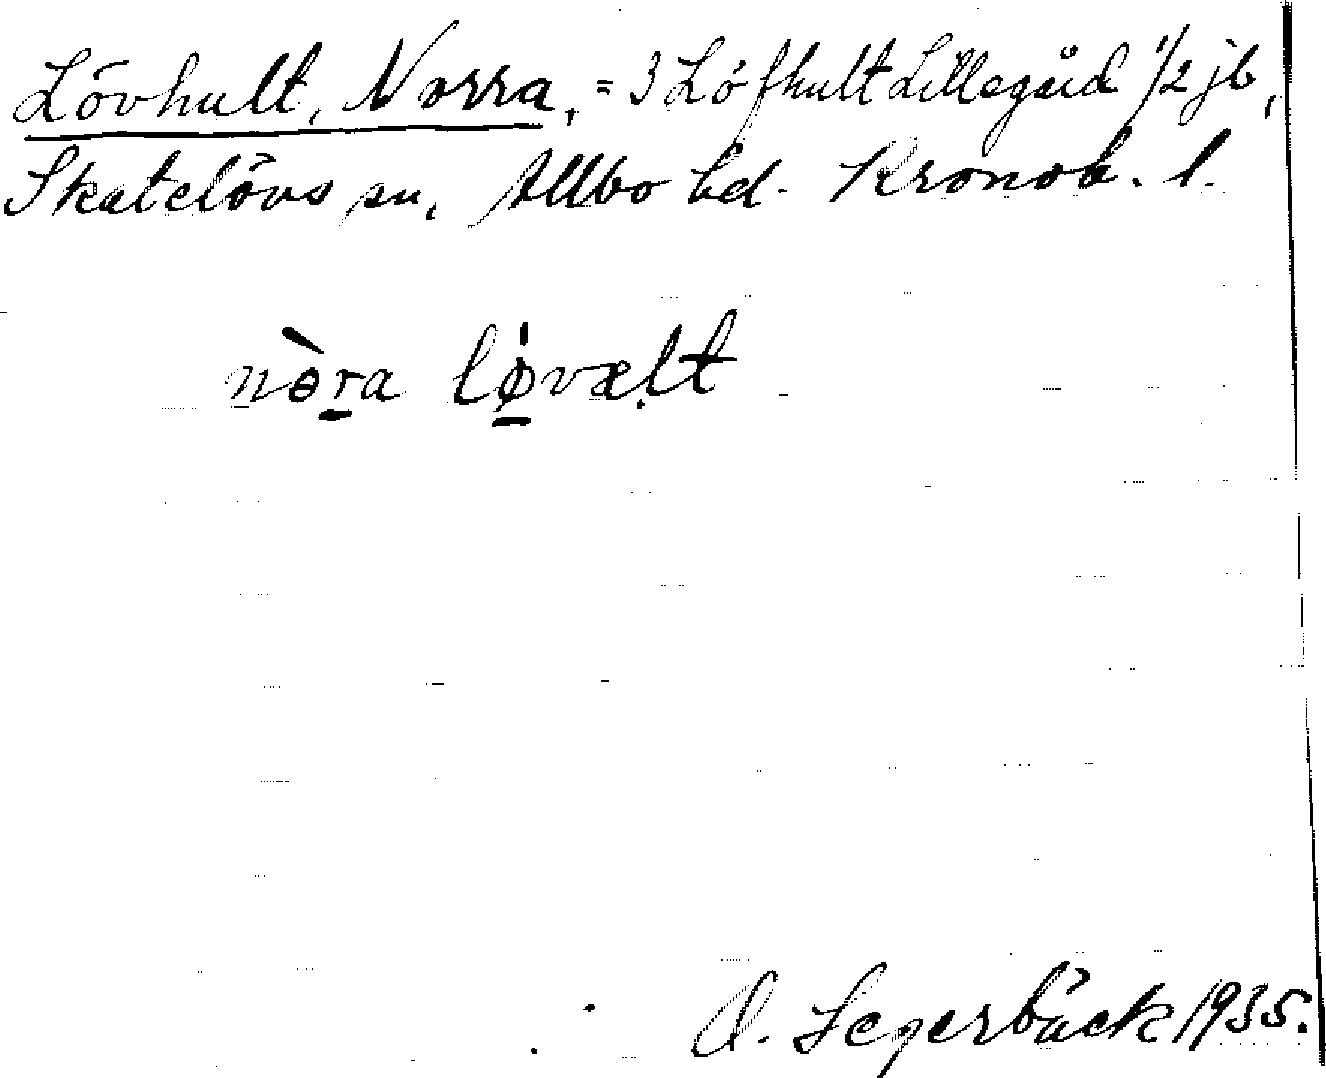 Lövhult, Norra, = 3 Löfhult Lillegård 1/2 jb,
Skatelövs sn, Allbo hd. Kronob. l.
nòra løvælt
O. Segerbäck 1935.